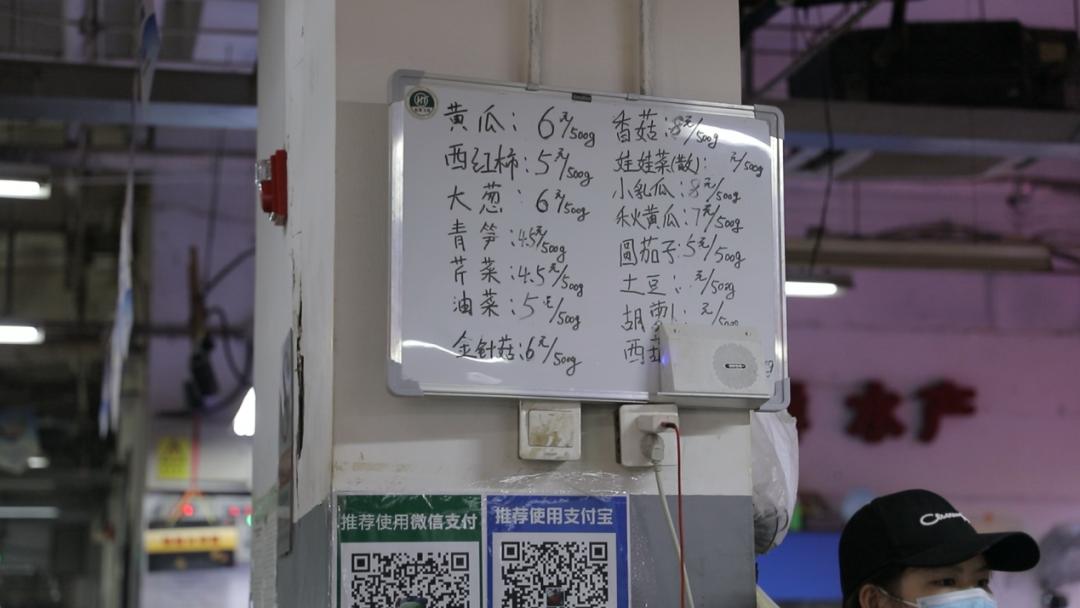 黄瓜: 6元/500g
西红柿: 5元/500g
大葱: 6元/500g
青笋: 4.5元/500g
芹菜: 4.5元/500g
油菜: 5元/500g
金针菇: 6元/500g
香菇: 8元/500g
娃娃菜(散): 元/500g
小乳瓜: 8元/500g
秋黄瓜: 7元/500g
圆茄子: 5元/500g
土豆: 元/500g
胡萝卜 元/500g
西
推荐使用微信支付
推荐使用支付宝
水产